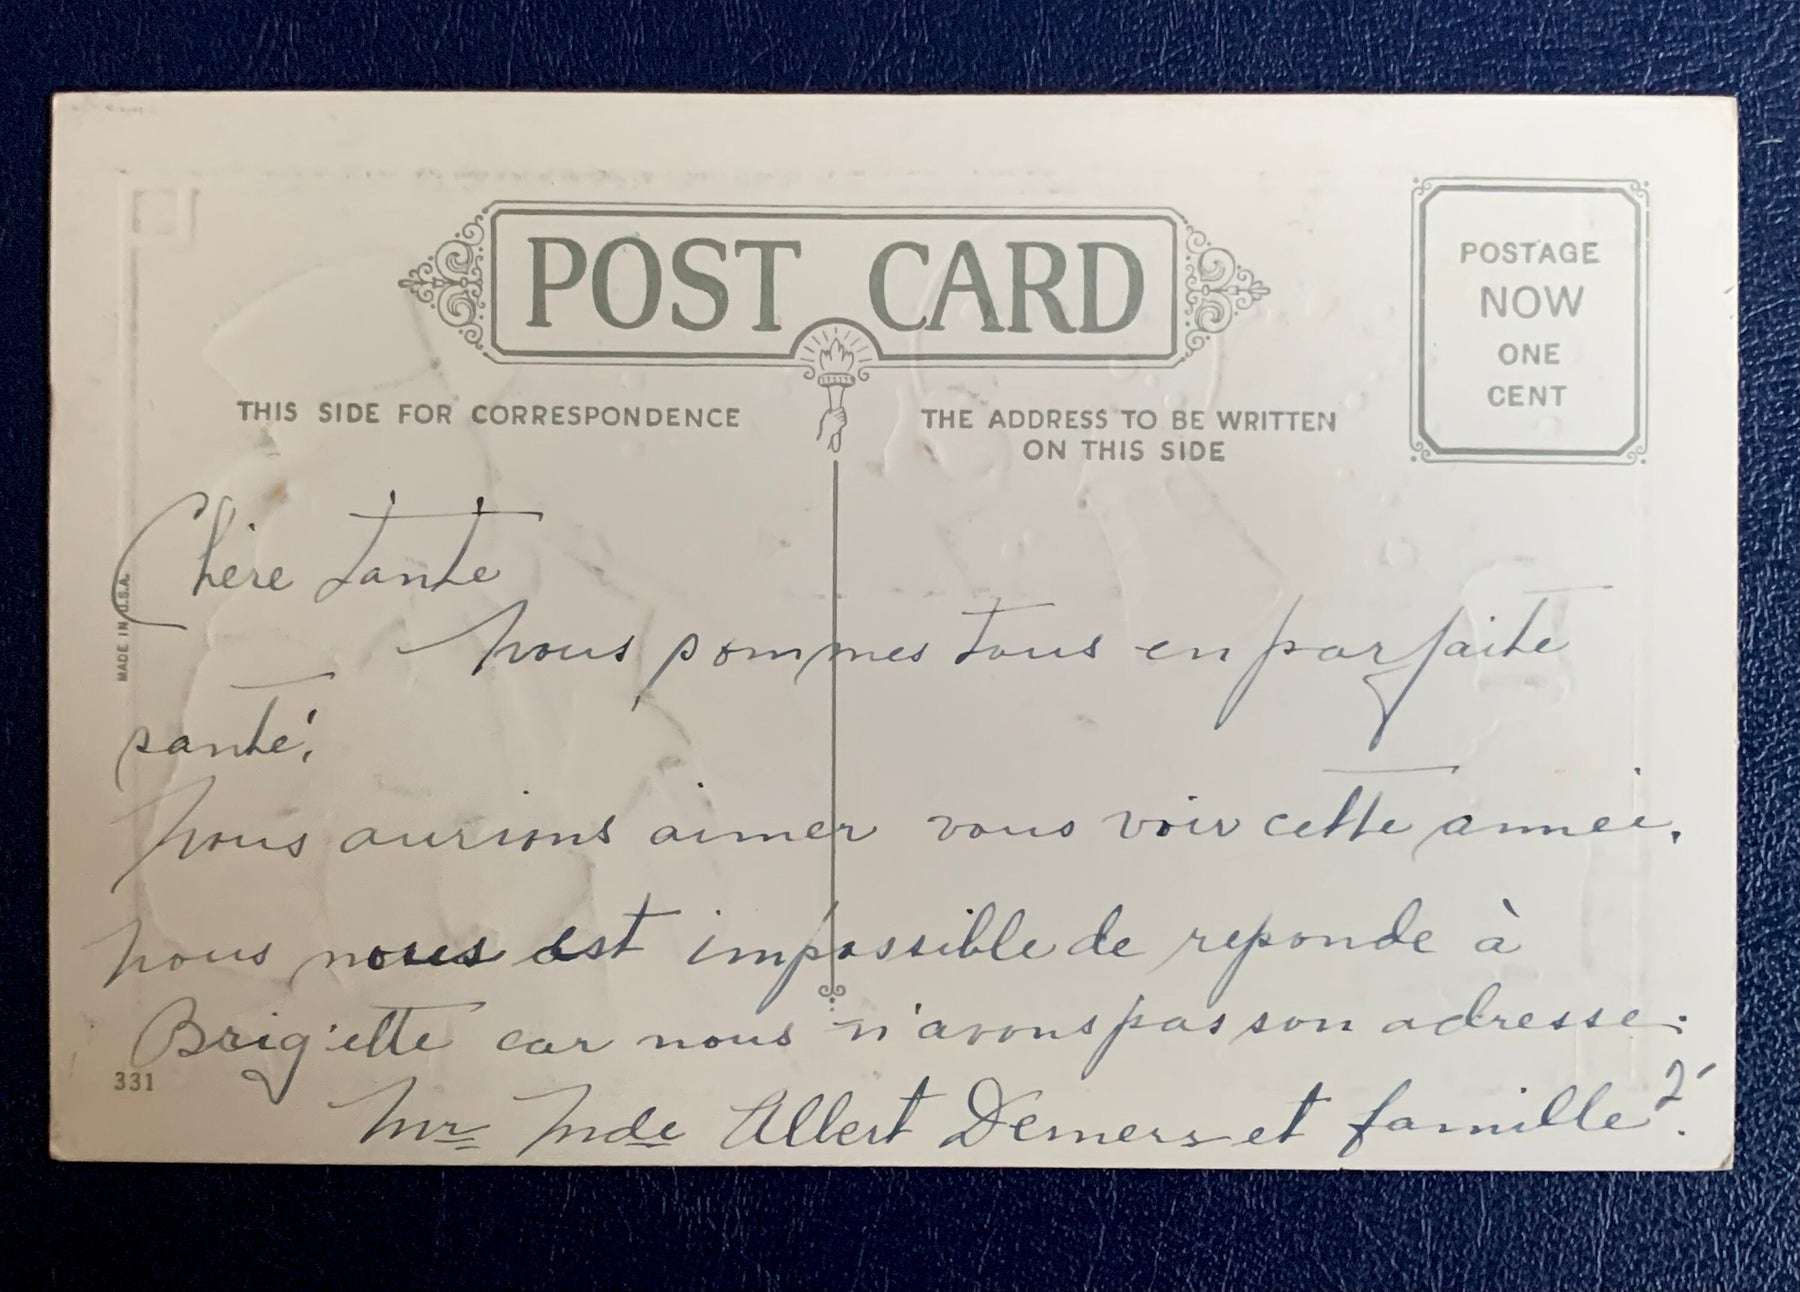 POST CARD
POSTAGE
NOW
ONE
CENT
THIS SIDE FOR CORRESPONDENCE
THE ADDRESS TO BE WRITTEN
ON THIS SIDE
MADE IN U.S.A.
Chère tante
Nous sommes tous en parfaite
santé.
Nous aurions aimer vous voir cette année.
Nous nous est impossible de reponde à
Brigitte car nous n'avons pas son adresse.
Mr Mde Albert Demers et famille
331